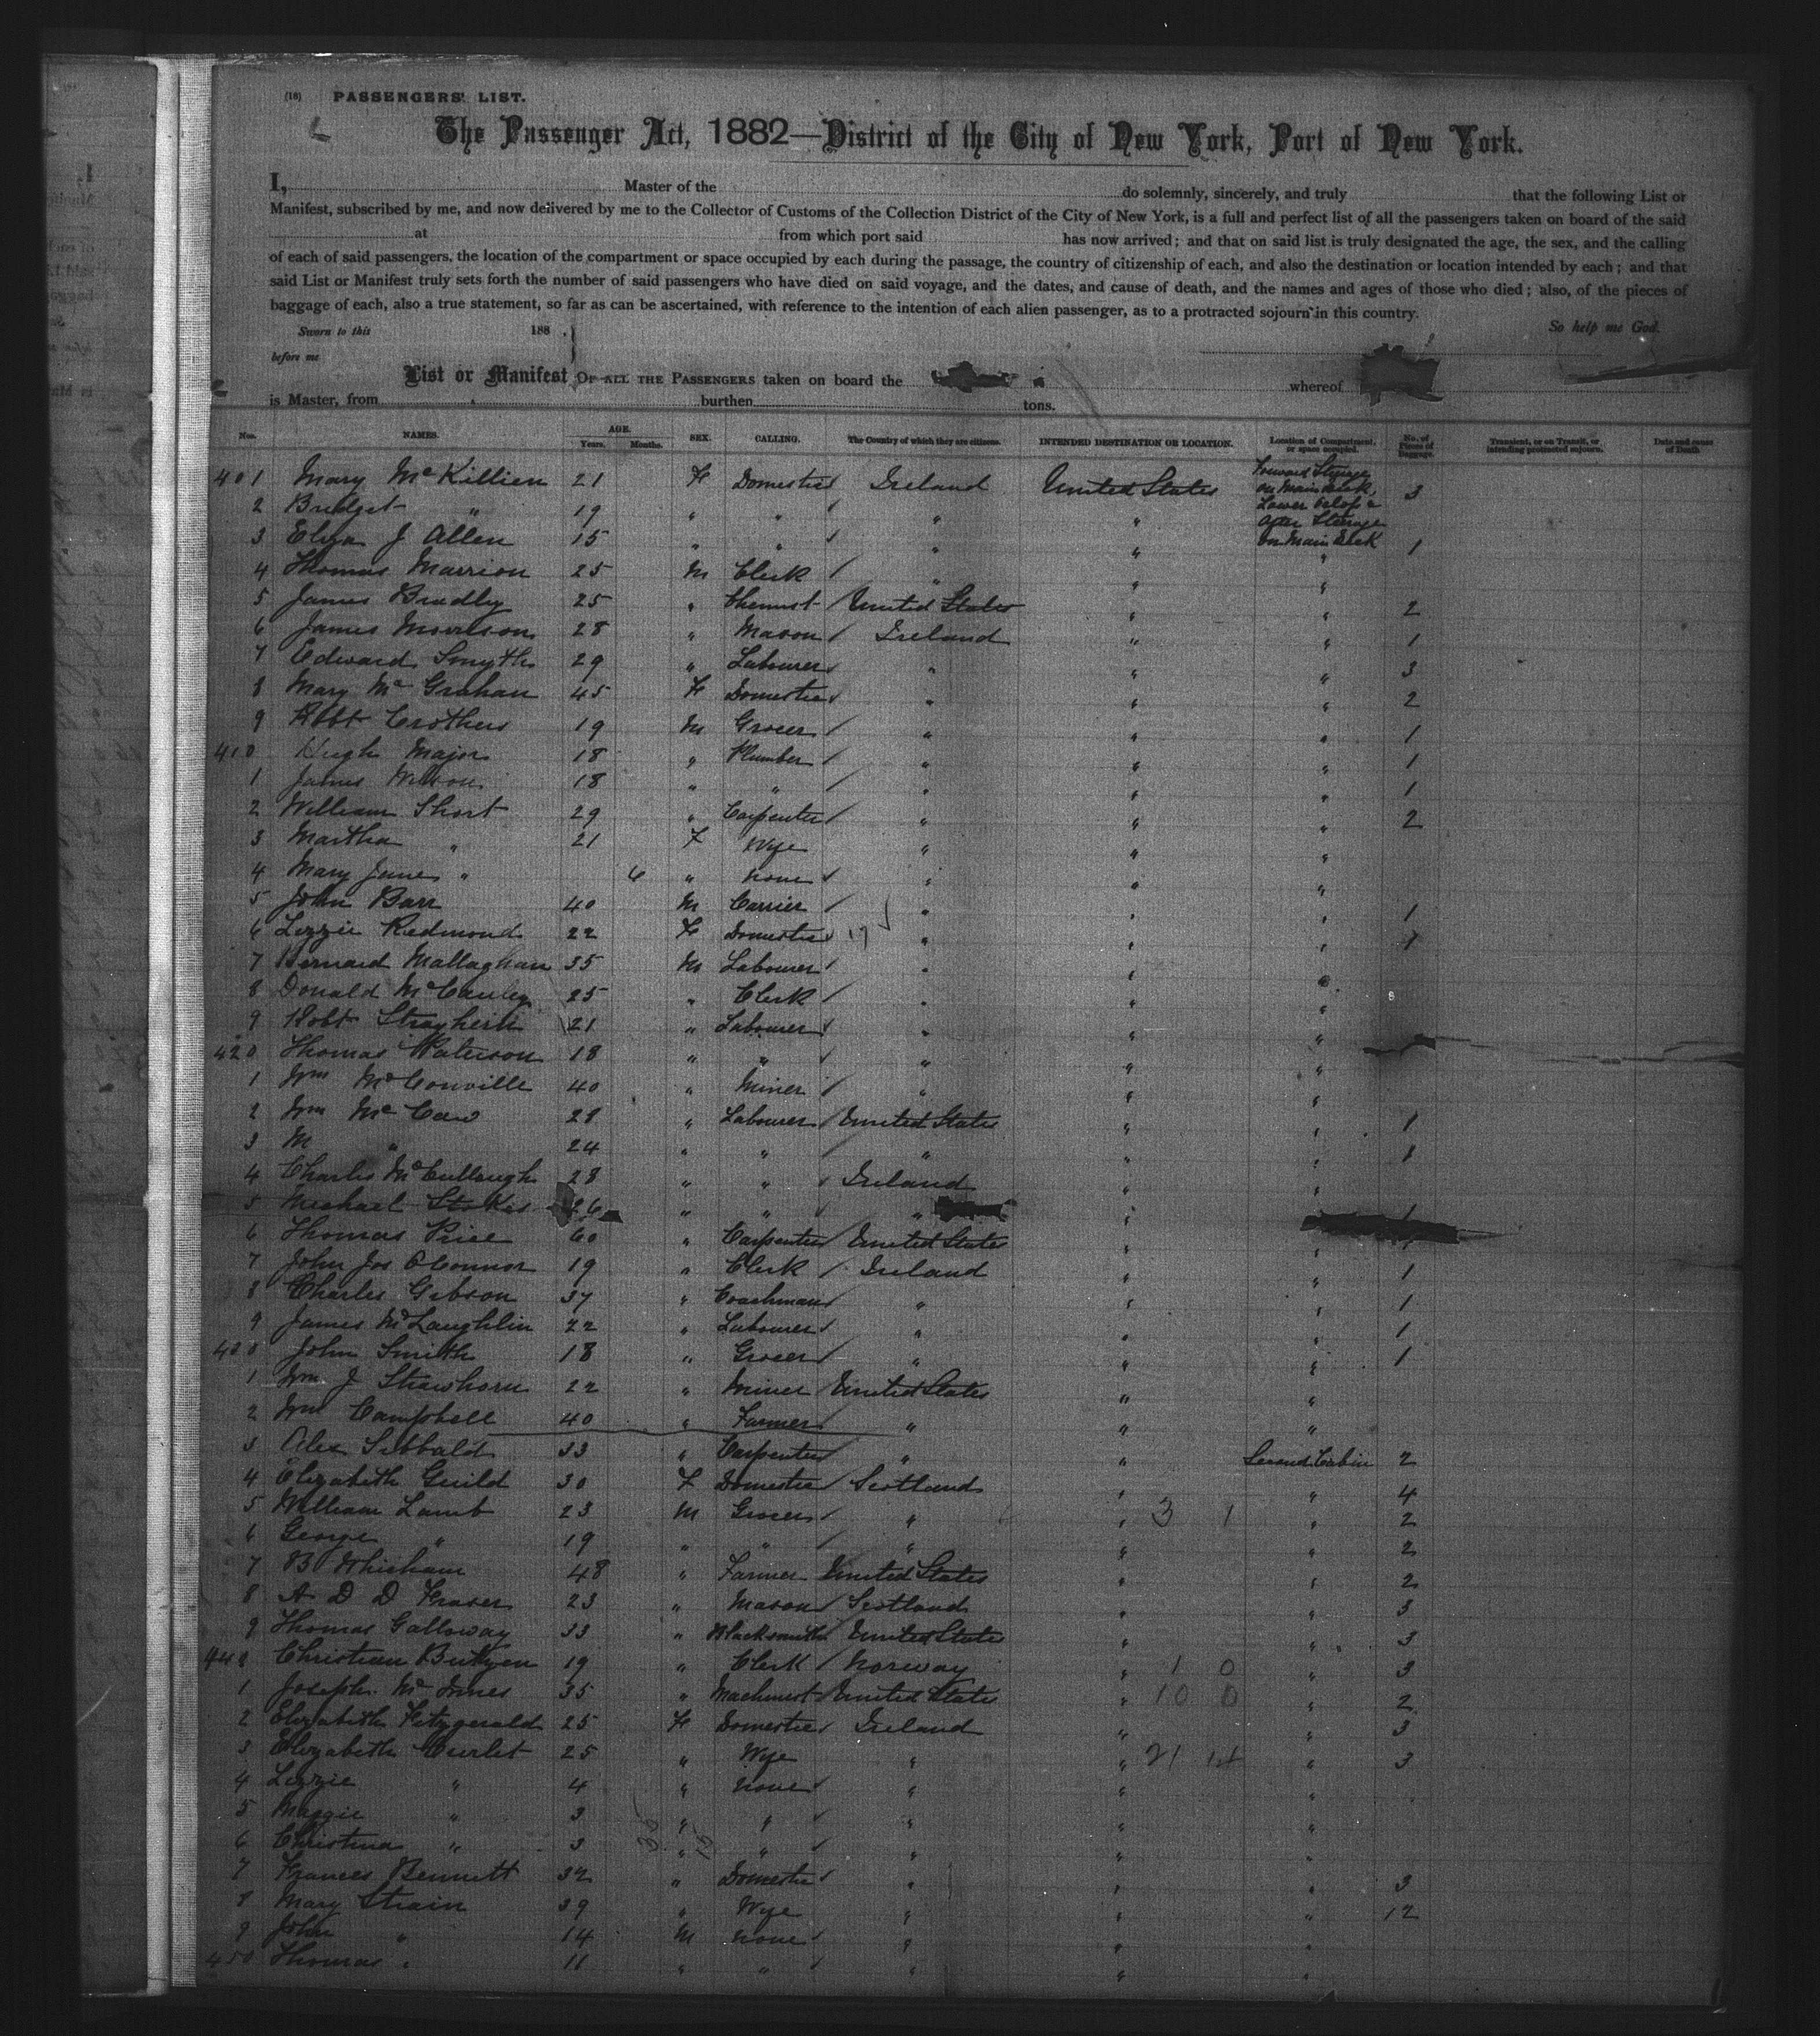 (18) PASSENGERS' LIST.
The Passenger Act, 1882—District of the City of New York, Port of New York.
I, Master of the do solemnly, sincerely, and truly that the following List or
Manifest, subscribed by me, and now delivered by me to the Collector of Customs of the Collection District of the City of New York, is a full and perfect list of all the passengers taken on board of the said
at from which port said has now arrived; and that on said list is truly designated the age, the sex, and the calling
of each of said passengers, the location of the compartment or space occupied by each during the passage, the country of citizenship of each, and also the destination or location intended by each; and that
said List or Manifest truly sets forth the number of said passengers who have died on said voyage, and the dates, and cause of death, and the names and ages of those who died; also, of the pieces of
baggage of each, also a true statement, so far as can be ascertained, with reference to the intention of each alien passenger, as to a protracted sojourn in this country.
Sworn to this 188 . So help me God.
before me
List or Manifest OF ALL THE PASSENGERS taken on board the whereof
is Master, from burthen tons.
Nos. NAMES. AGE. Years. Months. SEX. CALLING. The Country of which they are citizens. INTENDED DESTINATION OR LOCATION. Location of Compartment, or space occupied. No. of Pieces of Baggage. Transient, or on Transit, or intending protracted sojourn. Date and cause of Death
401 Mary McKillien 21 F Domestic Ireland United States Forward Steerage on Main Deck, Lower Deck & After Steerage on Main Deck 3
2 Bridget " 19 " " " "
3 Eliza J Allen 15 " " " " " 1
4 Thomas Marrion 25 M Clerk " " "
5 James Bradley 25 " Chemist United States " " 2
6 James Morrison 28 " Mason Ireland " " 1
7 Edward Smyth 29 " Labourer " " " 3
8 Mary McGrahan 45 F Domestic " " " 2
9 Robt Crothers 19 M Grocer " " " 1
410 Hugh Major 18 " Plumber " " " 1
1 James Wilson 18 " " " " " 1
2 William Short 29 " Carpenter " " " 2
3 Martha " 21 F Wife " " "
4 Mary Jane " 6 " None " " "
5 John Barr 40 M Carrier " " " 1
6 Lizzie Redmond 22 F Domestic " " " 1
7 Bernard Mallaghan 35 M Labourer " " "
8 Donald McCauley 25 " Clerk " " "
9 Robt 21 " Labourer " " "
420 Thomas Waterson 18 " " " " "
1 Wm McConville 40 " Miner " " "
2 Wm McCaw 28 " Labourer United States " " 1
3 M " 24 " " " " " 1
4 Charles McCullough 28 " " Ireland " "
5 Michael Stokes 26 " " " " 1
6 Thomas Price 60 " Carpenter United States " " 1
7 John Jos O'Connor 19 " Clerk Ireland " " 1
8 Charles Gibson 37 " Coachman " " " 1
9 James McLaughlin 22 " Labourer " " " 1
430 John Smith 18 " Grocer " " " 1
1 Wm J Strawhorn 22 " Miner United States " "
2 Wm Campbell 40 " Farmer " " "
3 Alex Sibbald 33 " Carpenter " " Second Cabin 2
4 Elizabeth Guild 30 F Domestic Scotland " " 4
5 William Lamb 23 M Grocer " " 3 1 " 2
6 George " 19 " " " " " 2
7 B Whicham 48 " Farmer United States " " 2
8 A D D Fraser 23 " Mason Scotland " " 3
9 Thomas Galloway 33 " Blacksmith United States " " 3
440 Christian 19 " Clerk Norway " 1 0 " 3
1 Joseph McInnes 35 " Machinist United States " 10 0 " 2
2 Elizabeth Fitzgerald 25 F Domestic Ireland " " 3
3 Elizabeth Curlet 25 " Wife " " 21 14 " 3
4 Lizzie " 4 " None " " "
5 Maggie " 3 " " " " "
6 Christina " 3 " " " " "
7 Frances Bennett 32 " Domestic " " " 3
8 Mary Strain 39 " Wife " " " 12
9 John " 14 M None " " "
450 Thomas " 11 " " " " "